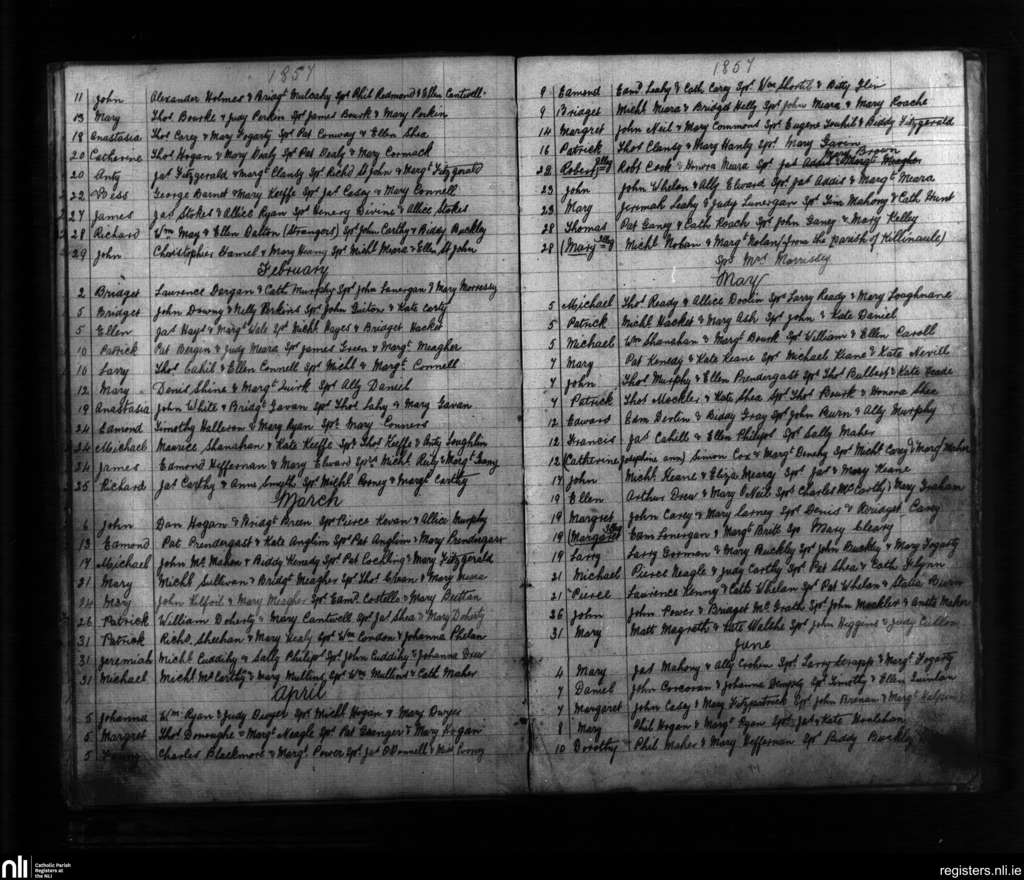 1857
11 John Alexander Holmes & Bridgt Mulcahy Spr Phil Redmond & Ellen Cantwell
13 Mary Thos Bourke & Judy Perkin Spr James Bourk & Mary Perkin
18 Anastasia Thos Carey & Mary Fogarty Spr Pat Conway & Ellen Shea
20 Catherine Thos Hogan & Mary Healy Spr Pat Healy & Mary Cormack
20 Anty Jas Fitzgerald & Margt Clanty Spr Richd St John & Margt Fitzgerald
22 Bess George Barnet & Mary Keiffe Spr Jas Casey & Mary Connell
27 James Jas Stokes & Allice Ryan Spr Henery Divine & Allice Stokes
28 Richard Wm May & Ellen Dalton (Strangers) Spr John Carthy & Biddy Buckley
29 John Christopher Daniel & Mary Spr Michl Meara & Ellen St John
February
2 Bridget Laurence Dargan & Cath Murphy Spr John Lonergan & Mary Morrissey
5 Bridget John Downy & Nelly Perkins Spr John & Kate Carty
5 Ellen Jas Hays & Margt Wale Spr Michl Hayes & Bridget Hacket
10 Patrick Pat Bergin & Judy Meara Spr James Green & Margt Meagher
10 Larry Thos Cahil & Ellen Connell Spr Michl & Margt Connell
12 Mary Denis Shine & Margt Quirk Spr Ally Daniel
19 Anastasia John White & Bridgt Gavan Spr Thos Lahy & Mary Gavan
24 Edmond Timothy Halloran & Mary Ryan Spr Mary Connors
24 Michael Maurice Shanahan & Kate Keeffe Spr Thos Keeffe & Anty Loughlin
24 James Edmond Heffernan & Mary Elward Sprs Michl & Margt
25 Richard Jas Carthy & Anne Smyth Spr Michl & Margt Carthy
March
6 John Dan Hogan & Bridgt Breen Spr Pierce Kevan & Allice Murphy
13 Edmond Pat Prendergast & Kate Anglim Spr Pat Anglim & Mary Prendergast
17 Michael John Mc Mahon & Biddy Kenedy Spr Pat & Mary Fitzgerald
21 Mary Michl Sullivan & Bridgt Meagher Spr Thos & Mary Meara
24 Mary John Kilfoil & Mary Meagher Spr Eamd Costello & Mary
26 Patrick William Doherty & Mary Cantwell Spr Jas Shea & Mary Doherty
31 Patrick Richd Sheehan & Mary Healy Spr Wm Condon & Johanna Phelan
31 Jeremiah Michl Cuddihy & Sally Philips Spr John Cuddihy & Johanna Drew
31 Michael Michl McCarthy & Mary Mullins Spr Wm Mullins & Cath Maher
April
5 Johanna Wm Ryan & Judy Dwyer Spr Michl Hogan & Mary Dwyer
5 Margret Thos Donoughe & Margt Neagle Spr Pat Granger & Mary Hogan
5 Charles Blackmore & Margt Power Spr Jas O'Donnell &
1857
9 Edmond Eamd Leahy & Cath Carey Spr Wm Shortil & Bitty Glen
9 Bridget Michl Meara & Bridgd Kelly Spr John Meara & Mary Roache
14 Margret John Neil & Mary Commons Spr Eugene & Biddy Fitzgerald
16 Patrick Thos Clansy & Mary Hanly Spr Mary Gavin
22 Robert Illeg Robt Cook & Honora Meara Spr Jas & Margt Meagher
23 John John Whelan & Ally Elward Spr Jas Addis & Margt Meara
23 Mary Jeremiah Leahy & Judy Lonergan Spr Tim Mahony & Cath Hunt
28 Thomas Pat Ganey & Cath Roach Spr John Ganey & Mary Kelly
28 (Mary Illeg Michl Nolan & Margt Nolan (from the parish of Killinaule)
Spr Mrs Morrissey
May
5 Michael Thos Ready & Allice Doolin Spr Larry Ready & Mary Loaghnane
5 Patrick Michl Hacket & Mary Ash Spr John & Kate Daniel
5 Michael Wm Shanahan & Margt Bourk Spr William & Ellen Caroll
7 Mary Pat Kenedy & Kate Keane Spr Michael Keane & Kate Nevill
7 John Thos Murphy & Ellen Prendergast Spr Thos Bulbert & Kate
7 Patrick Thos Mockler & Kate Shea Spr Thos Bourk & Honora Shea
12 Edward Eam Devlin & Biddy Gray Spr John Burn & Ally Murphy
12 Francis Jas Cahill & Ellen Philips Spr Sally Maher
12 (Catherine Josephine ann) Simon Cox & Margt Spr Michl Carey & Margt Maher
17 John Michl Keane & Eliza Meary Spr Jas & Mary Keane
19 Ellen Arthur Drew & Mary O'Neil Spr Charles McCarthy & Mary Graham
19 Margret John Carey & Mary Carney Spr Denis & Bridget Casey
19 (Margaret Illeg Eam Lonergan & Margt Britt Sp Mary Cleary
19 Larry Larry Gorman & Mary Buckley Spr John Buckley & Mary Fogarty
21 Michael Pierce Neagle & Judy Carthy Spr Pat Shea & Cath Flynn
21 Pierce Lawrence Kenny & Cath Whelan Spr Pat Whelan & Statia Burn
26 John John Power & Bridget McGrath Spr John Mockler & Anste Maher
31 Mary Matt Magrath & Kate Walshe Spr John Higgins & Judy Cullon
June
4 Mary Jas Mahony & Ally Crohen Spr Larry & Margt Fogarty
7 Daniel John Corcoran & Johanna Dempsy Spr Timothy & Ellen Quinlan
7 Margaret John Casey & Mary Fitzpatrick Spr John Brenan & Margt
8 Mary Phil Hogan & Margt Ryan Spr Jas & Kate Houlahan
10 Dorothy Phil Maher & Mary Heffernan Spr Biddy Buckley
nli Catholic Parish
Registers at
the NLI
registers.nli.ie